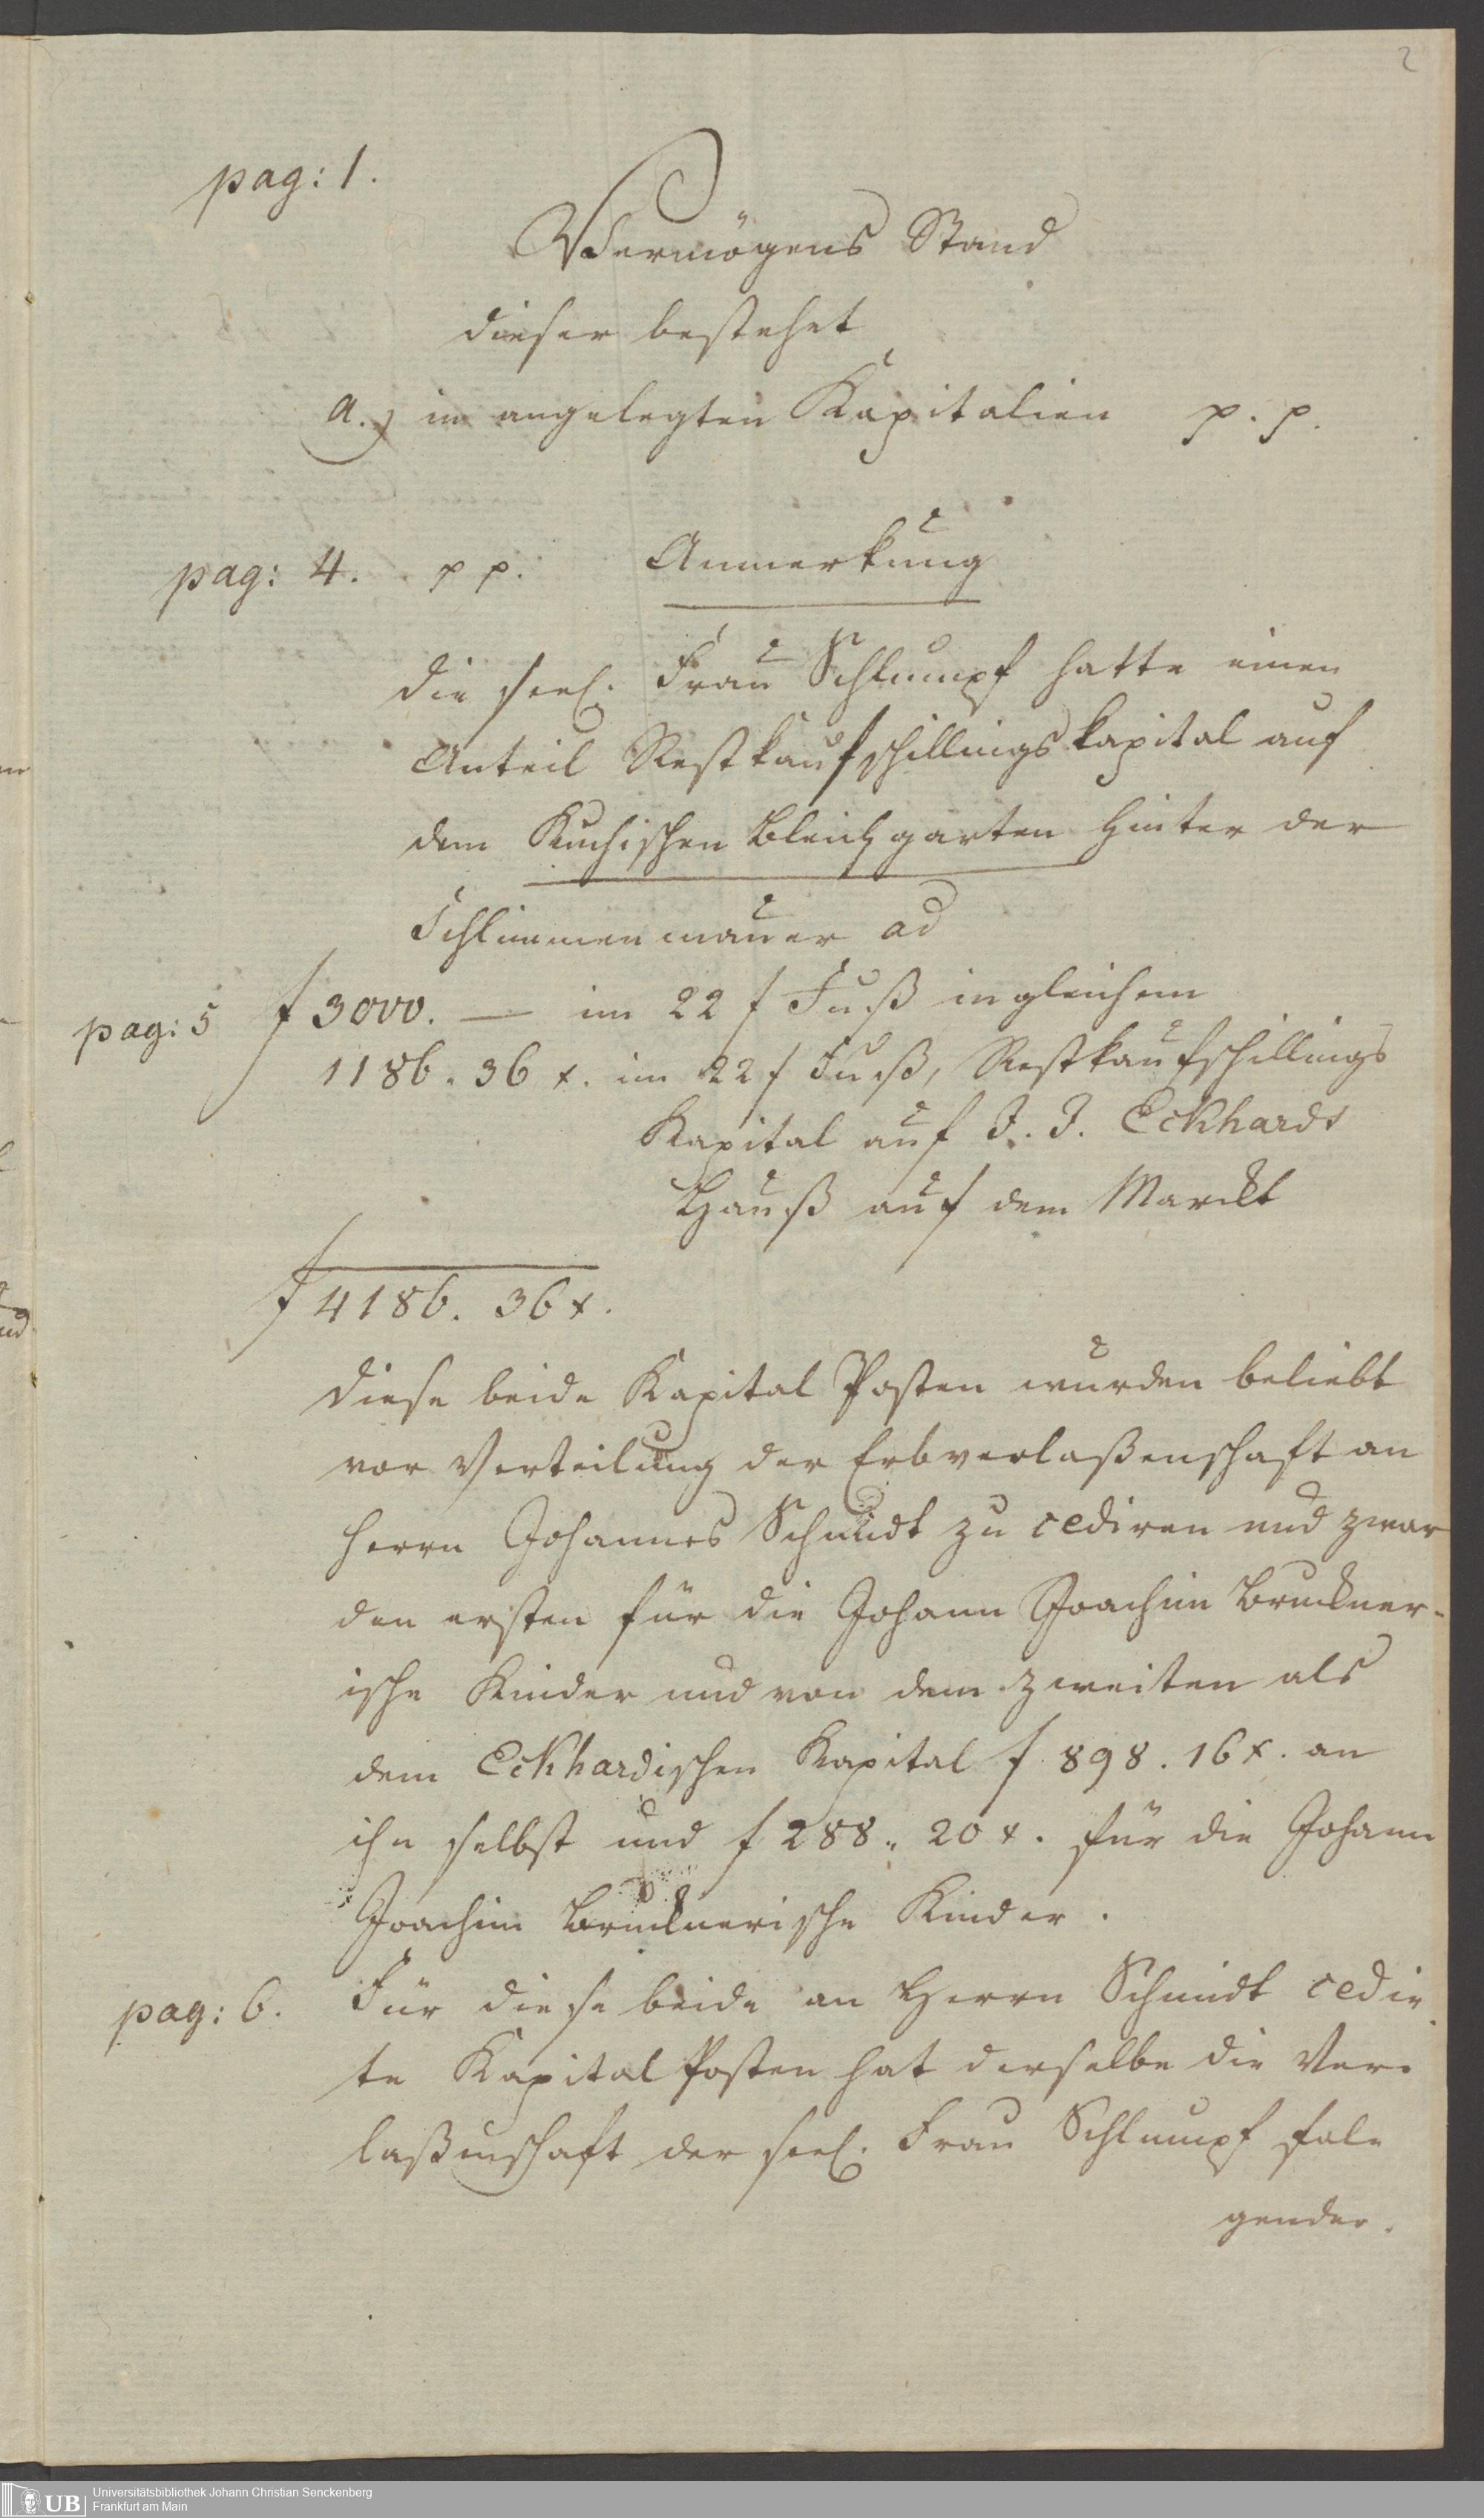 2
pag: 1.
Vermögens Stand
dieser bestehet
a.) in angelegten Kapitalien p. p.
pag: 4. p p. Anmerkung
die seel. Frau Schlumpf hatte einen
Anteil Restkaufschillingskapital auf
dem Kuchischen Bleichgarten hinter der
Schlimmenmauer ad
pag: 5 f 3000. — im 22 f Fuß ingleichem
1186. 36 x. im 22 f Fuß, Restkaufschillings
Kapital auf J. J. Eckhardt
Hauß auf dem Marckt
f 4186. 36 x.
diese beide Kapital Posten wurden beliebt
vor Verteilung der Erbverlaßenschaft an
Herrn Johannes Schmidt zu cediren und zwar
den ersten für die Johann Joachim Bruckner-
ische Kinder und von dem zweiten als
dem Eckhardischen Kapital f 898. 16 x. an
ihn selbst und f 288. 20 x. für die Johann
Joachim Brucknerische Kinder.
pag: 6. Für diese beide an Herrn Schmidt cedir
te Kapital Posten hat derselbe die Ver-
laßenschaft der seel. Frau Schlumpf fol-
gender.
UB
Universitätsbibliothek Johann Christian Senckenberg
Frankfurt am Main